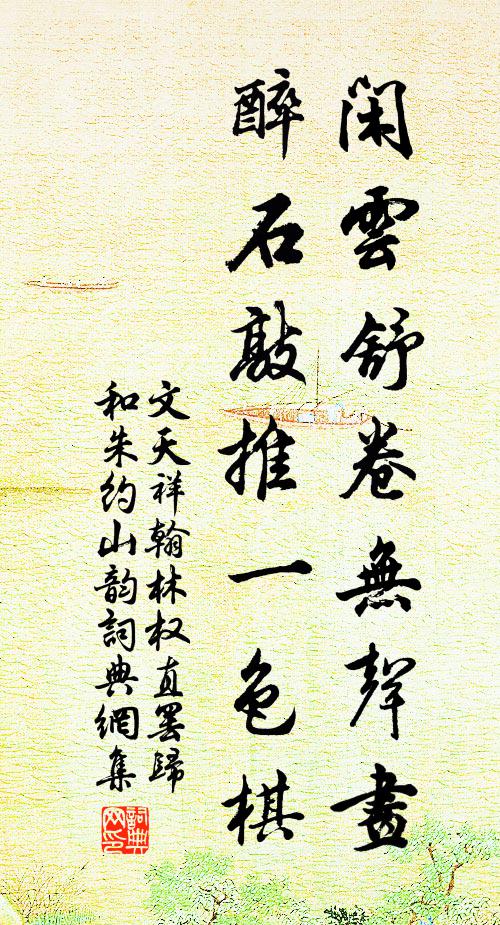 閑雲舒卷無聲畫
醉石敲推一色棋
文天祥翰林权直罢歸
和朱約山韵詞典網集
詞典
网印